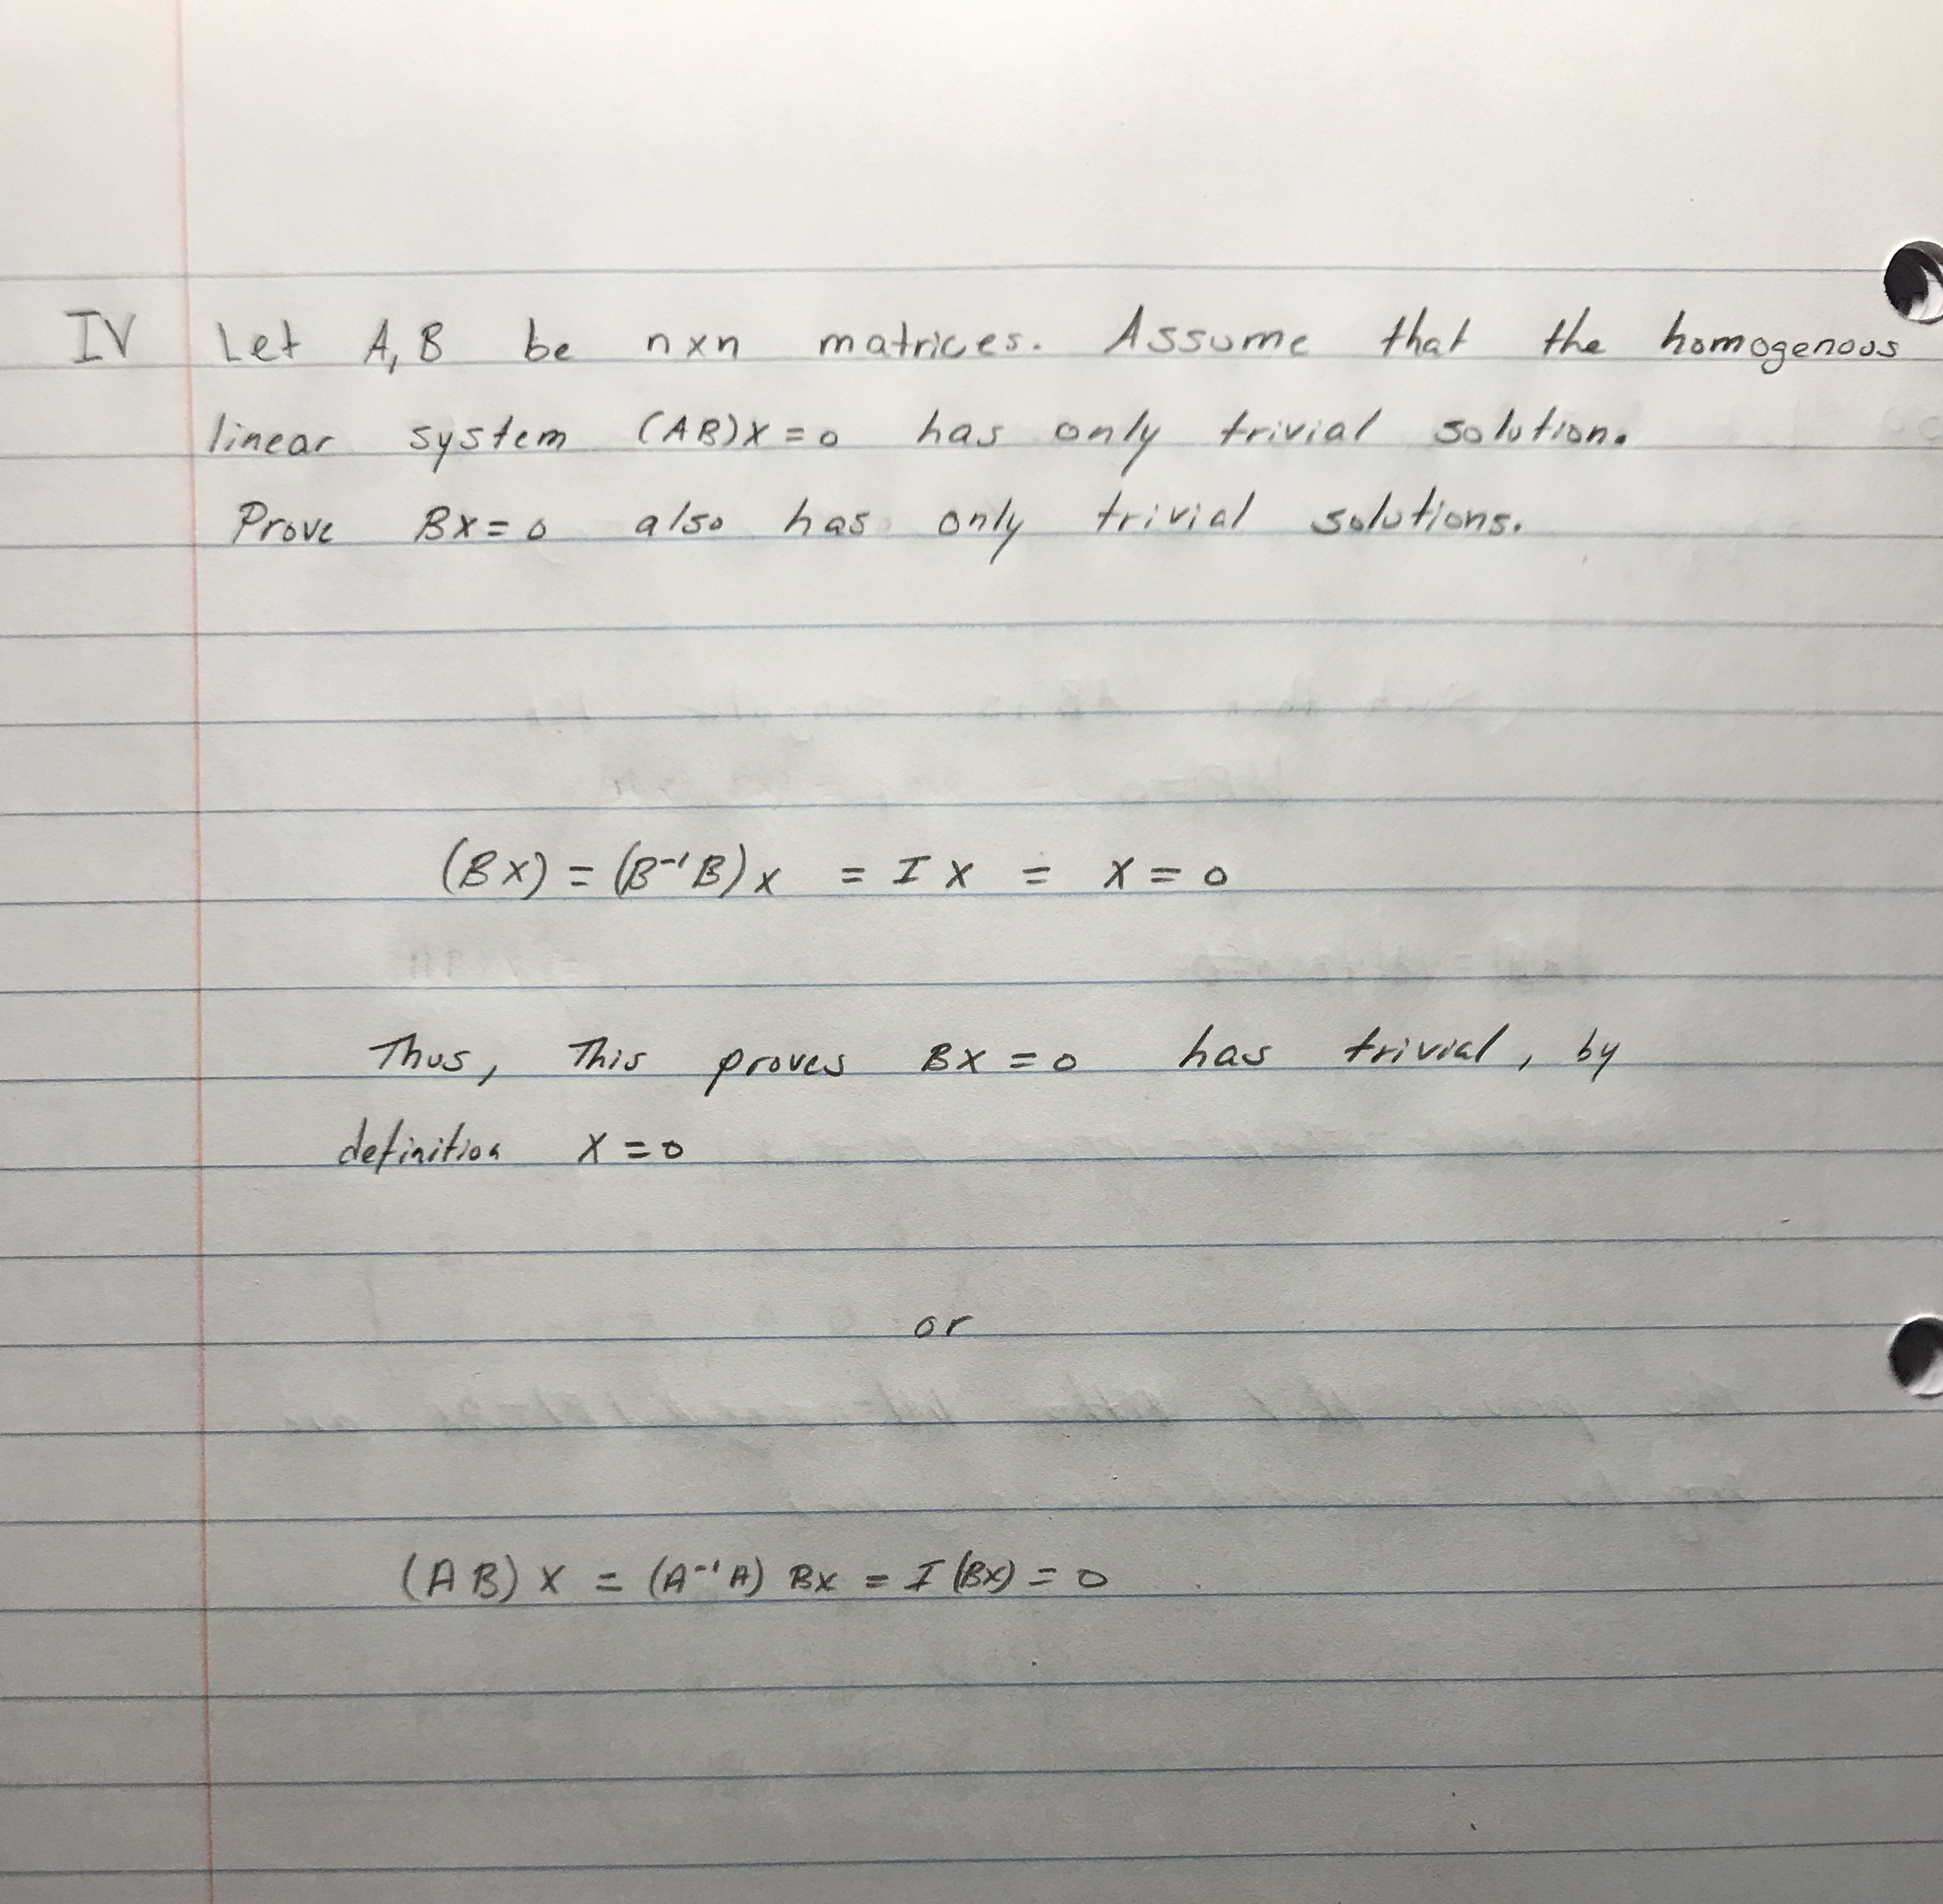 IV Let A, B be nxn matrices. Assume that the homogenous
linear system (AB)X=0 has only trivial solution.
Prove BX=0 also has only trivial solutions.
(BX) = (B⁻¹B)X = IX = X = 0
Thus, This proves BX = 0 has trivial, by
definition X = 0
or
(AB) X = (A⁻¹A) BX = I (BX) = 0